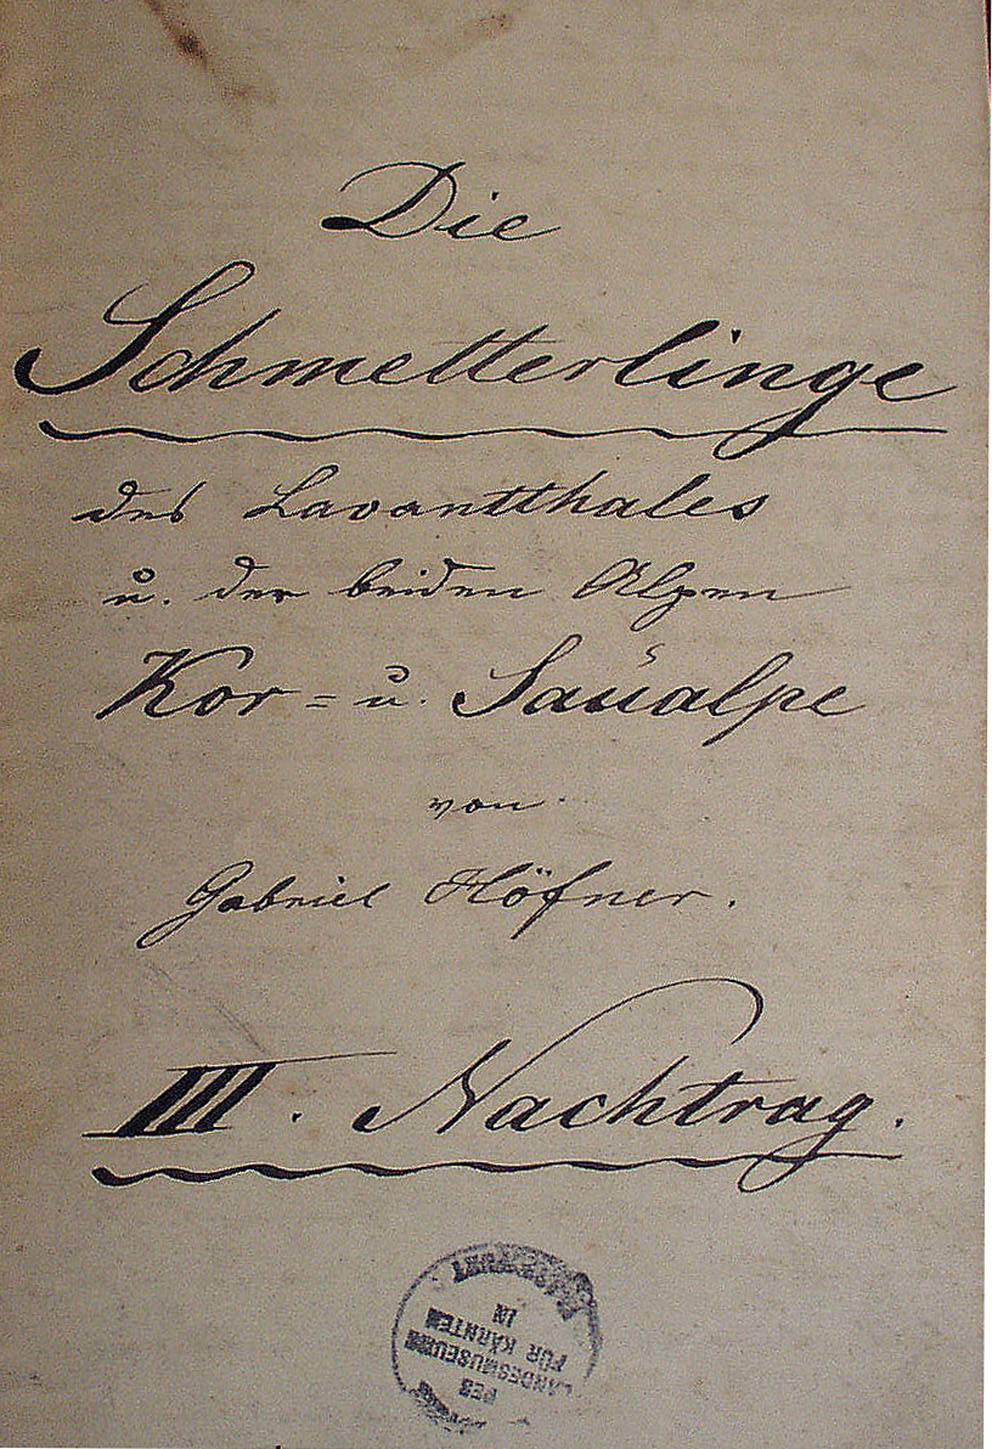 Die
Schmetterlinge
des Lavantthales
u. der beiden Alpen
Kor= u. Saualpe
von
Gabriel Höfner.
III. Nachtrag.
DES
LANDESMUSEUM
FÜR KÄRNTEN
IN